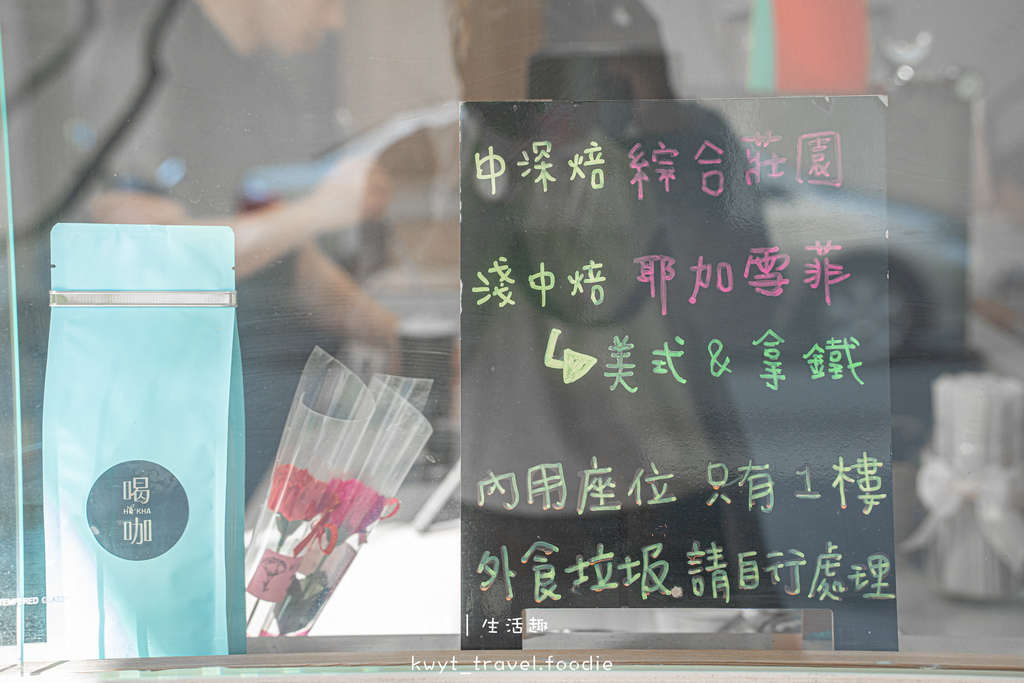 中深焙 綜合莊園
淺中焙 耶加雪菲
美式 & 拿鐵
內用座位 只有 1 樓
外食垃圾請自行處理
喝
HĒ KHA
咖
TEMPERED GLASS
| 生活趣
kwyt_travel.foodie